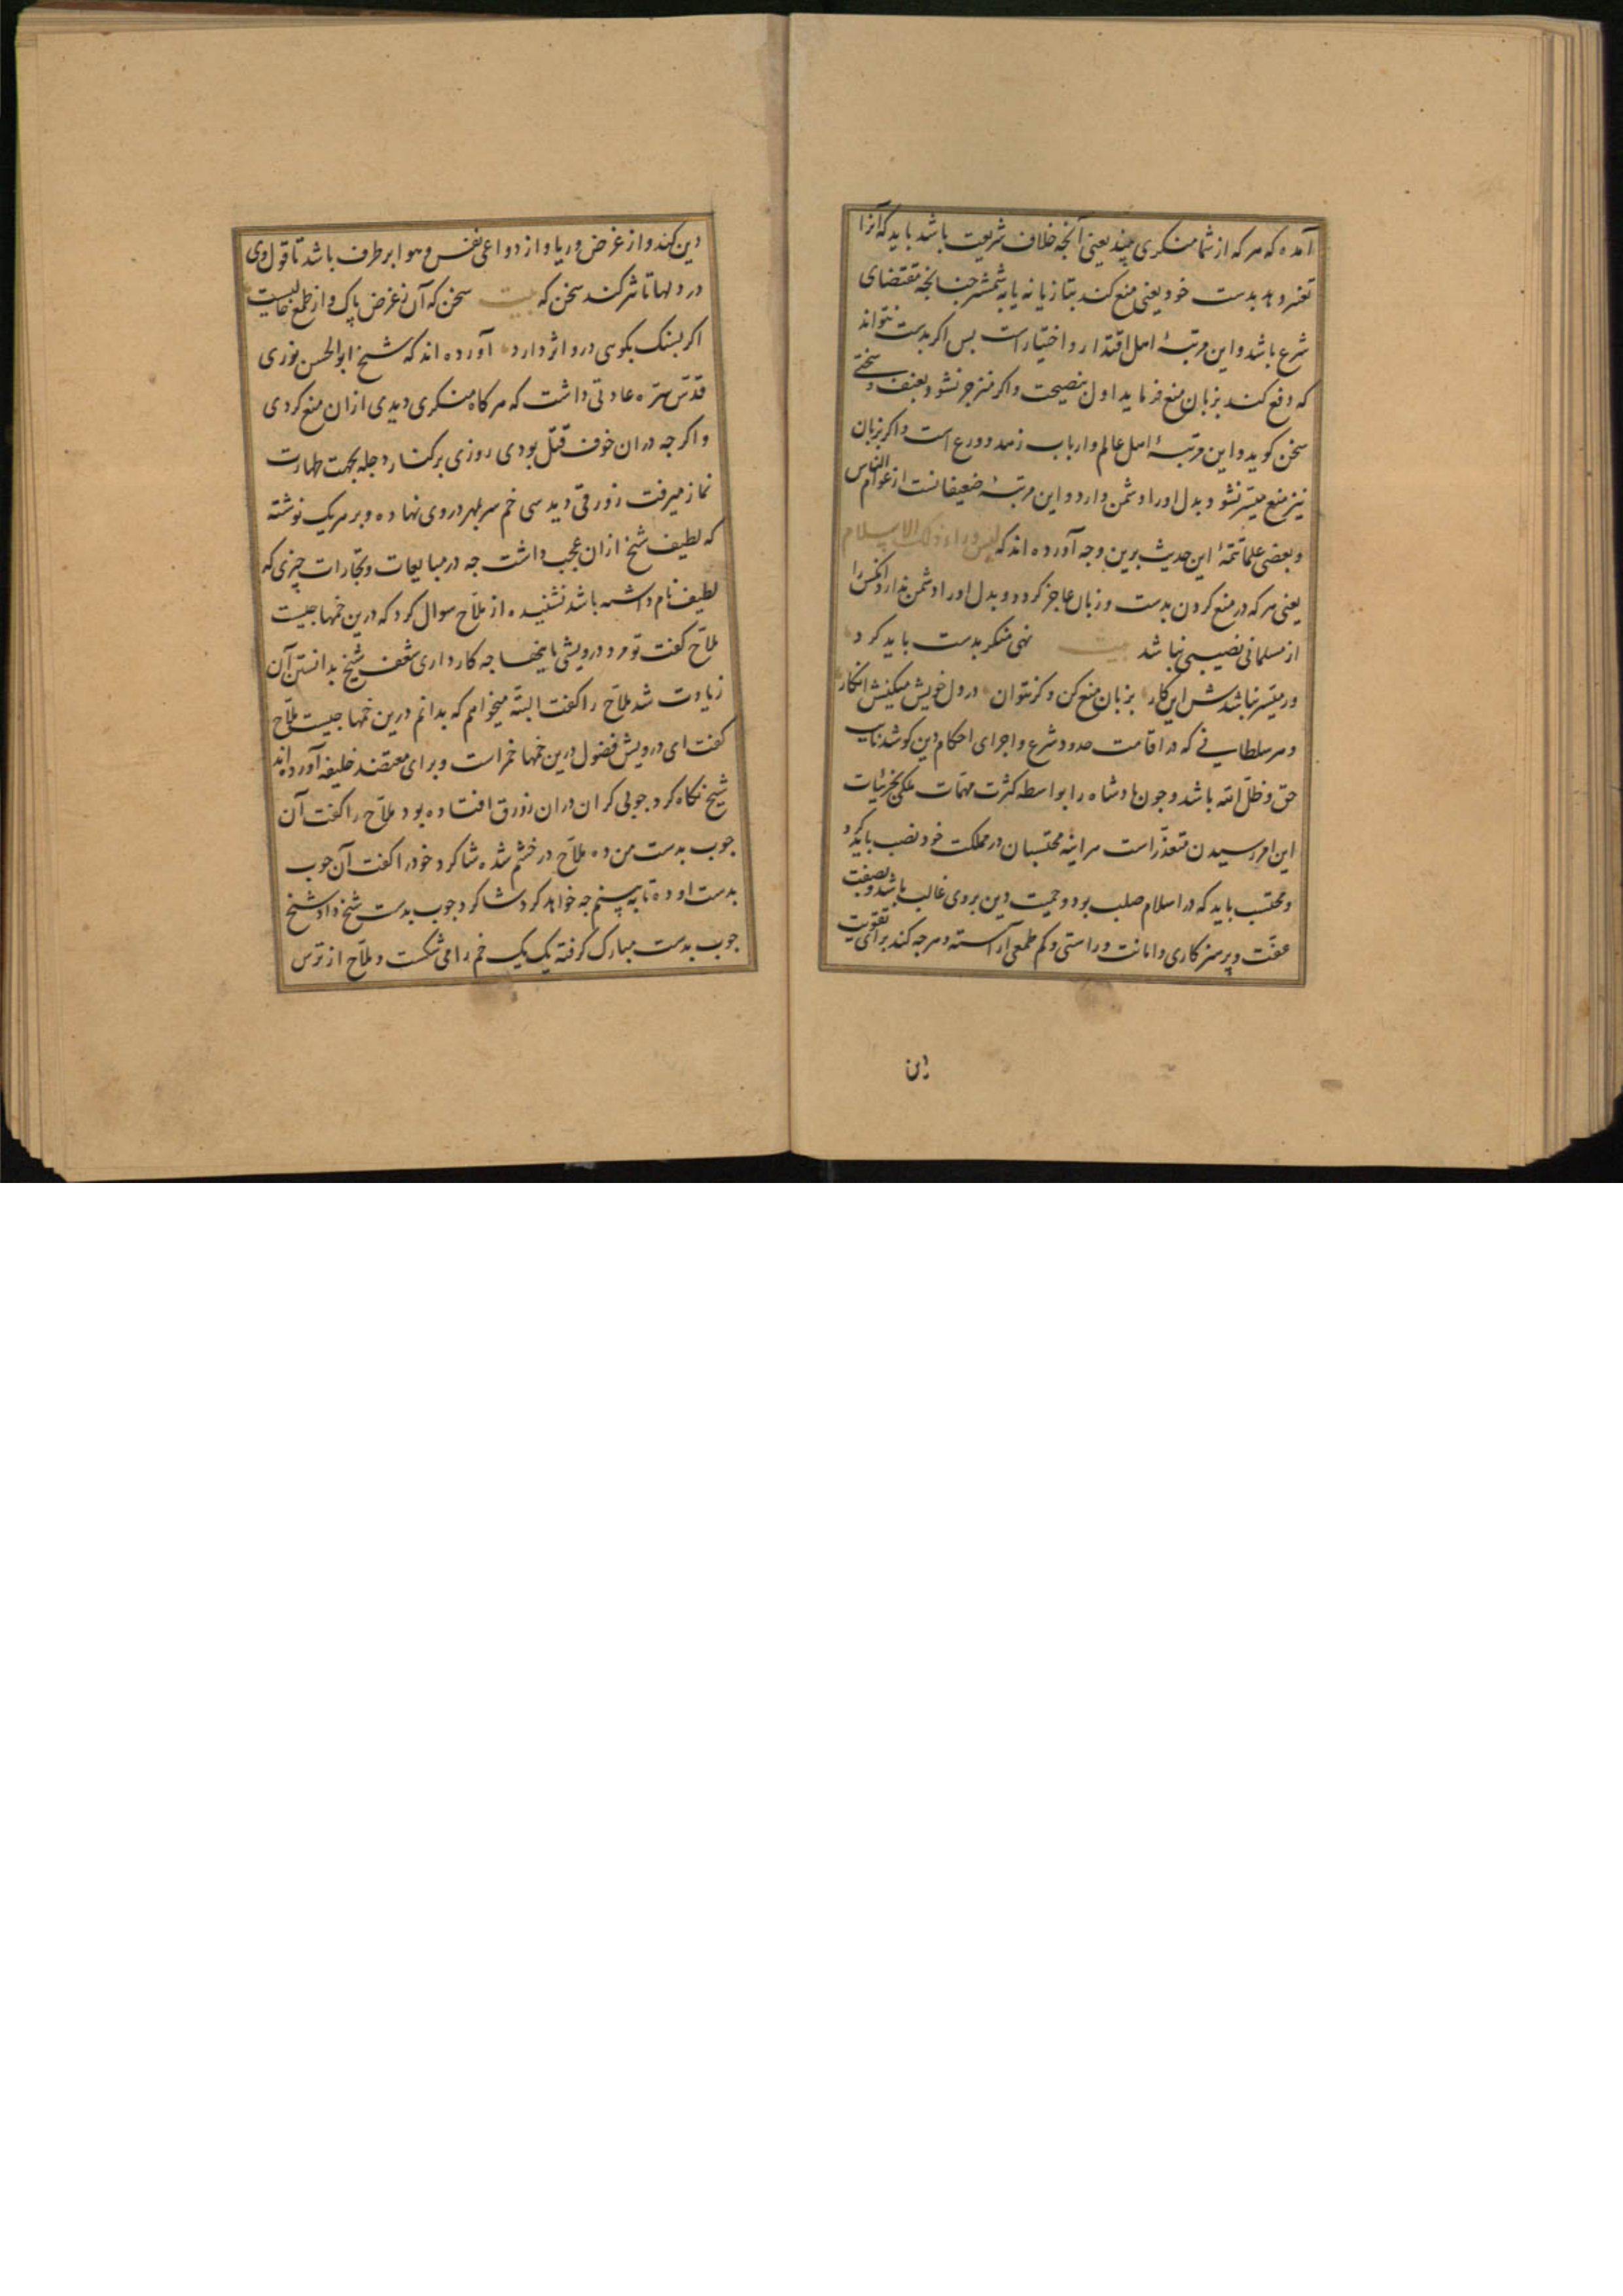 آمده که هر که از شما منکری بیند یعنی آنچه خلاف شریعت باشد باید که آنرا
تغیر دهد بدست خود یعنی منع کند بتازیانه یا به شمشیر چنانچه مقتضای
شرع باشد و این مرتبهٔ اهل اقتدار و اختیار است بس اکر بدست نتواند
که دفع کند بزبان منع فرماید اول بنصیحت و اکر منزجر نشود بعنف و سختی
سخن کوید و این مرتبهٔ اهل عالم و ارباب زهد و ورع است و اکر بزبان
نیز منع میسّر نشود بدل او را دشمن دارد و این مرتبهٔ ضعیفانست از عوام الناس
و بعضی علما تتمهٔ این حدیث برین وجه آورده اند که لیس وراء ذلک الاسلام
یعنی هر که در منع کردن بدست و زبان عاجز کردد و بدل او را دشمن ندارد انکس را
از مسلمانی نصیبی نباشد بیت نهی منکر بدست باید کرد
ور میسّر نباشدش این کار بزبان منع کن و کر نتوان در دل خویش میکنش انکار
و هر سلطانی که در اقامت حدود شرع و اجرای احکام دین کوشد نایب
حق و ظلّ الله باشد و جون بادشاه را بواسطه کثرت مهمّات ملکی بجزئیات
این امر رسیدن متعذّر است هراینه محتسبان در مملکت خود نصب باید کرد
و محتسب باید که در اسلام صلب بود و حمیت دین بر وی غالب باشد و بصفت
عفّت و پرهیز کاری و امانت و راستی و کم طمعی آراسته و هر جه کند برای تقویت
دین
دین کند و از غرض و ریا و از دواعی نفس و هوا بر طرف باشد تا قول وی
در دلها تاثیر کند سخن که بیت سخن که آن ز غرض پاک و از طمع خالیست
اکر بسنک بکوی درو اثر دارد آورده اند که شیخ ابوالحسن نوری
قدّس سرّه عادتی داشت که هر کاه منکری دیدی ازان منع کردی
و اکر جه دران خوف قتل بودی روزی بر کنار دجله بجهت طهارت
نماز میرفت زورقی دید سی خم سر بمهر در وی نهاده و بر هر یک نوشته
که لطیف شیخ ازان عجب داشت جه در مبایعات و تجارات چیزی که
لطیف نام داشته باشد نشنیده از ملاّح سوال کرد که درین خمها جیست
ملاّح کفت تو مرد درویشی باینها جه کار داری شعف شیخ بدانستن آن
زیادت شد ملاّح را کفت البتّه میخواهم که بدانم درین خمها جیست ملاّح
کفت ای درویش فضول درین خمها خمر است و برای معتضد خلیفه آورده اند
شیخ نکاه کرد جوبی کران دران زورق افتاده بود ملاّح را کفت آن
جوب بدست من ده ملاّح در خشم شده شاکرد خود را کفت آن جوب
بدست او ده تا ببینم جه خواهد کرد شاکرد جوب بدست شیخ داد شیخ
جوب بدست مبارک کرفته یک یک خم را می شکست و ملاّح از ترس